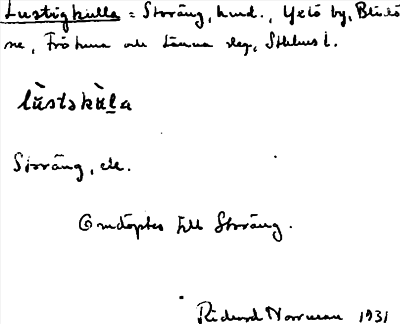 Lustigkulla = Storäng, hmd., Yxlö by, Blidö
sn, Frötuna och Länna slg, Sthlms l.
lùstəkùl̲a
Storäng, se.
Omdöptes till Storäng.
Richard Norrman 1931